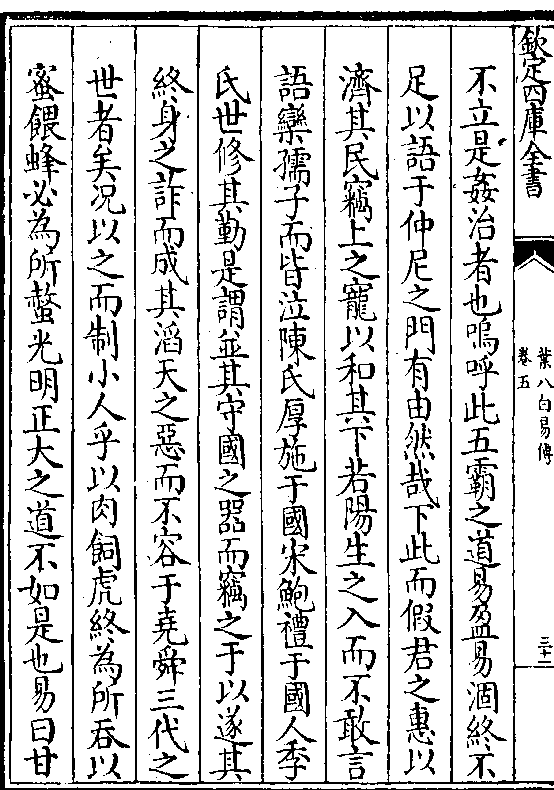 欽定四庫全書
葉八白易傳
卷五
三十二
不立是姦治者也嗚呼此五霸之道易盈易涸終不
足以語于仲尼之門有由然哉下此而假君之惠以
濟其民竊上之寵以和其下若陽生之入而不敢言
語欒孺子而皆泣陳氏厚施于國宋鮑禮于國人季
氏世修其勤是謂並其守國之器而竊之于以遂其
終身之詐而成其滔天之惡而不容于堯舜三代之
世者矣况以之而制小人乎以肉飼虎終為所吞以
蜜餵蜂必為所螫光明正大之道不如是也易曰甘